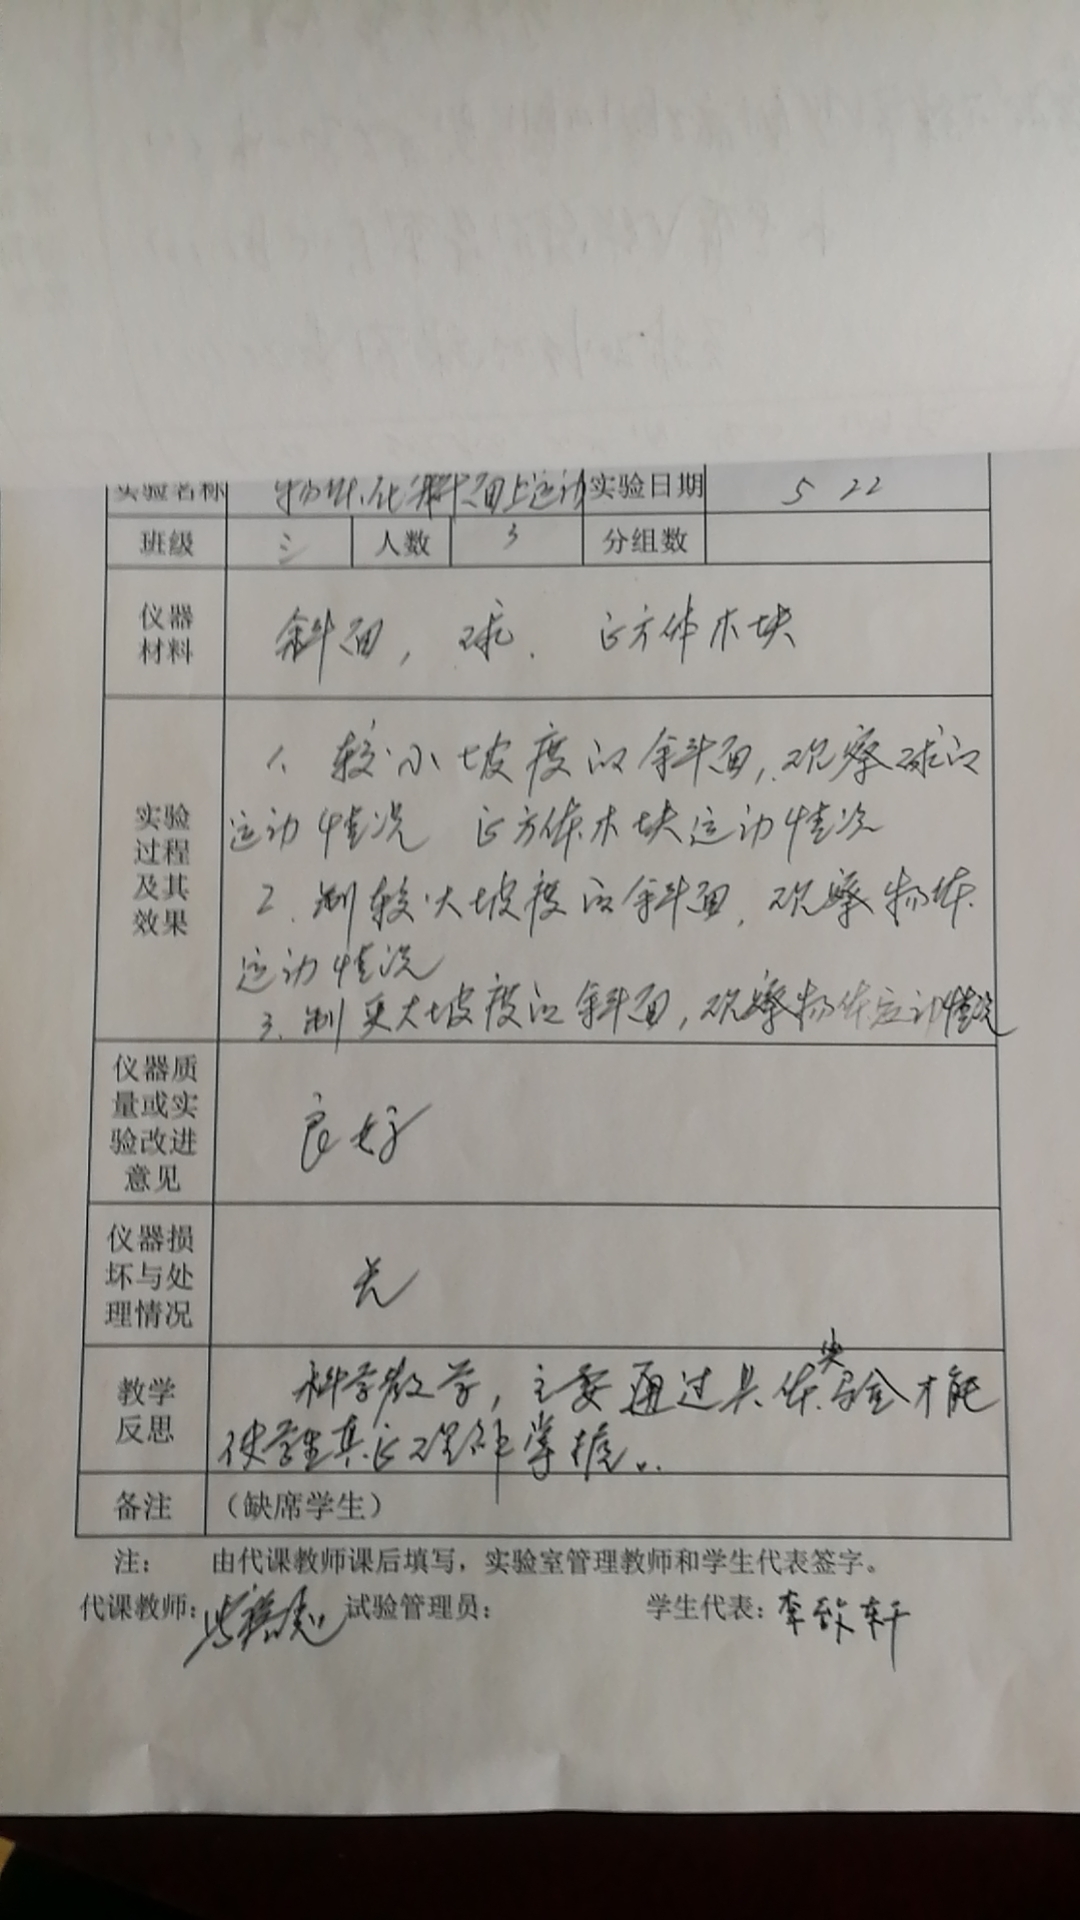 实验名称 物体在斜面上运动 实验日期 5 22
班级 三 人数 3 分组数
仪器材料 斜面，球．正方体木块
实验过程及其效果
1、较小坡度的斜面，观察球的
运动情况 正方体木块运动情况
2．制较大坡度的斜面，观察物体
运动情况
3．制更大坡度的斜面，观察物体运动情况
仪器质量或实验改进意见 良好
仪器损坏与处理情况 无
教学反思 科学教学，主要通过具体实验才能
使学生真正理解掌握。
备注 （缺席学生）
注： 由代课教师课后填写，实验室管理教师和学生代表签字。
代课教师： 试验管理员： 学生代表：李歆轩